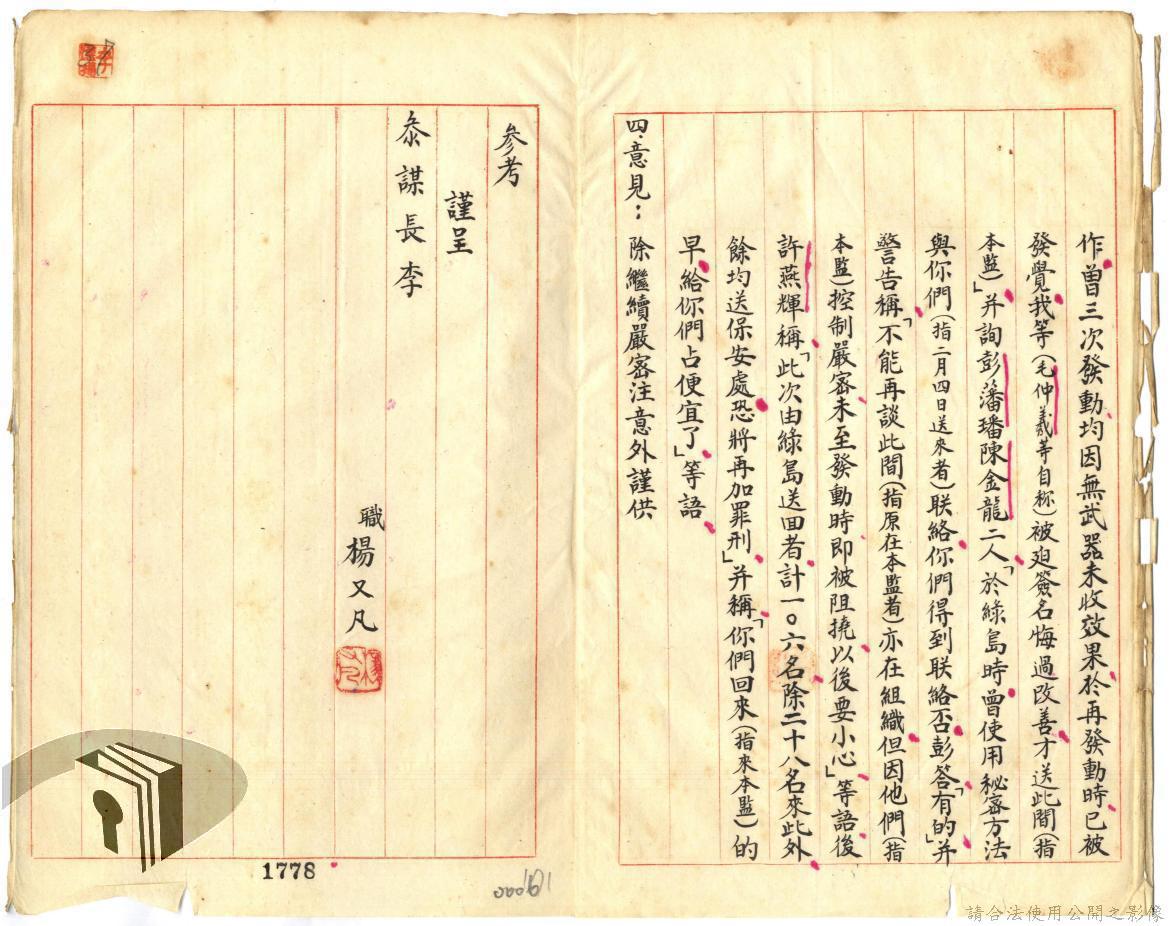 作曾三次發動均因無武器未收效果於再發動時已被
發覺我等(毛仲義等自称)被廹簽名悔過改善才送此間(指
本監)」并詢彭藩璠陳金龍二人「於綠島時曾使用秘密方法
與你們(指二月四日送來者)联絡你們得到联絡否彭答「有的」并
警告稱「不能再談此間(指原在本監者)亦在組織但因他們(指
本監)控制嚴密未至發動時即被阻撓以後要小心」等語後
許燕輝稱「此次由綠島送回者計一〇六名除二十八名來此外
餘均送保安處恐將再加罪刑」并稱「你們回來(指來本監)的
早給你們占便宜了」等語
四.意見：除繼續嚴密注意外謹供
參考
謹呈
叅謀長李
職楊又凡
1778
請合法使用公開之影像